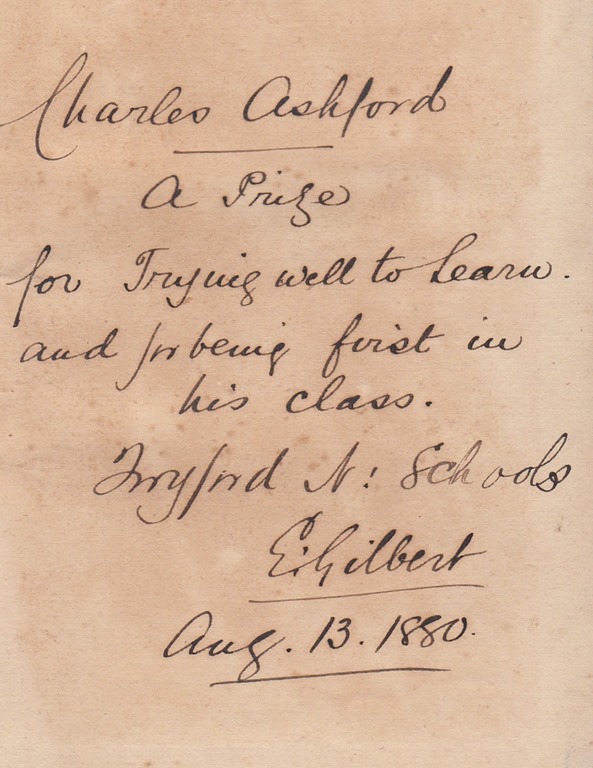 Charles Ashford
A Prize
for Trying well to Learn.
and for being first in
his class.
Twyford N: Schools
E. Gilbert
Aug. 13. 1880.